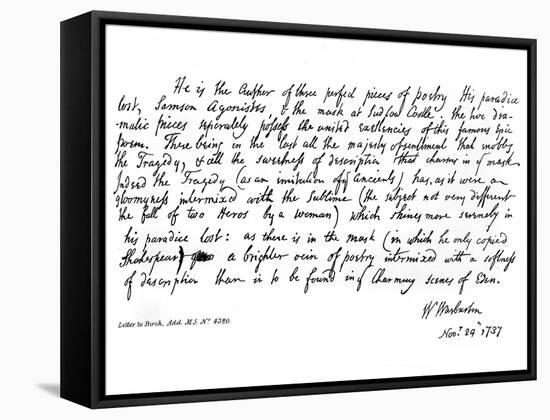 He is the Author of three perfect pieces of poetry His paradise
lost, Samson Agonistes & the mask at Ludlow Castle the two dra-
matic pieces seperately possess the united excellencies of this famous Epic
poem. There being in the last all the majesty of sentiment that nobles
the Tragedy, & all the sweetness of description that charms in y mask
Indeed the Tragedy (as an imitation of y Ancients) has, as it were a
gloominess intermixed with the Sublime (the subject not very different
the fall of two Heros by a woman) which shines more serenely in
his paradise lost: as there is in the mask (in which he only copied
Shakespear) a brighter vein of poetry intermixed with a softness
of description than is to be found in y Charming scenes of Eden.
W Warburton
Novr. 29th, 1737
Letter to Birch, Add. M.S. No. 4320.